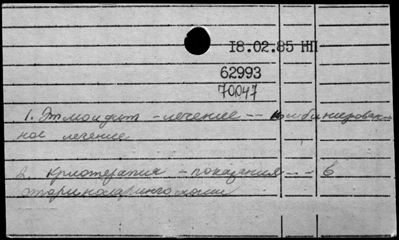 18.02.85 НП
62993
70047
1. Этмоидит - лечение -- комбинирован-
ное лечение
2. Криотерапия - показания -- в
оториноларингологии